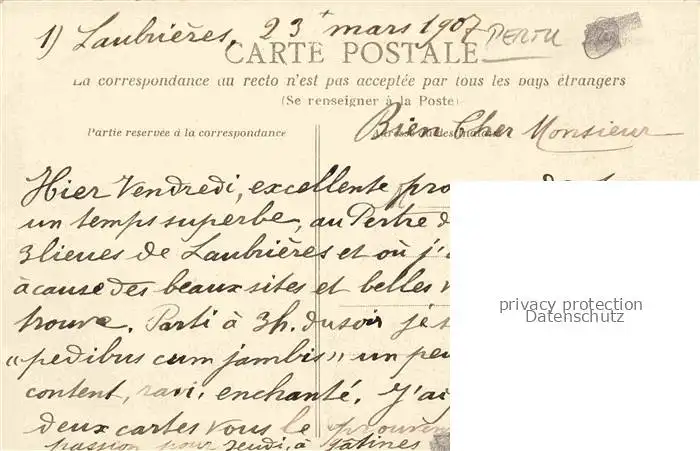 1) Laubrières, 23 mars 1907 PERTU
CARTE POSTALE
La correspondance au recto n'est pas acceptée par tous les pays étrangers
(Se renseigner à la Poste)
Bien Cher Monsieur
Partie reservée à la correspondance
Hier Vendredi, excellente
un temps superbe, au Pertre
3 lieues de Laubrières et où j'
à cause des beaux sites et belles
trouve. Parti à 3h. du soir je
"pedibus cum jambis" un peu
content, ravi, enchanté. J'ai
deux cartes vous le
passion pour Jeudi, à Gâtines
privacy protection
Datenschutz